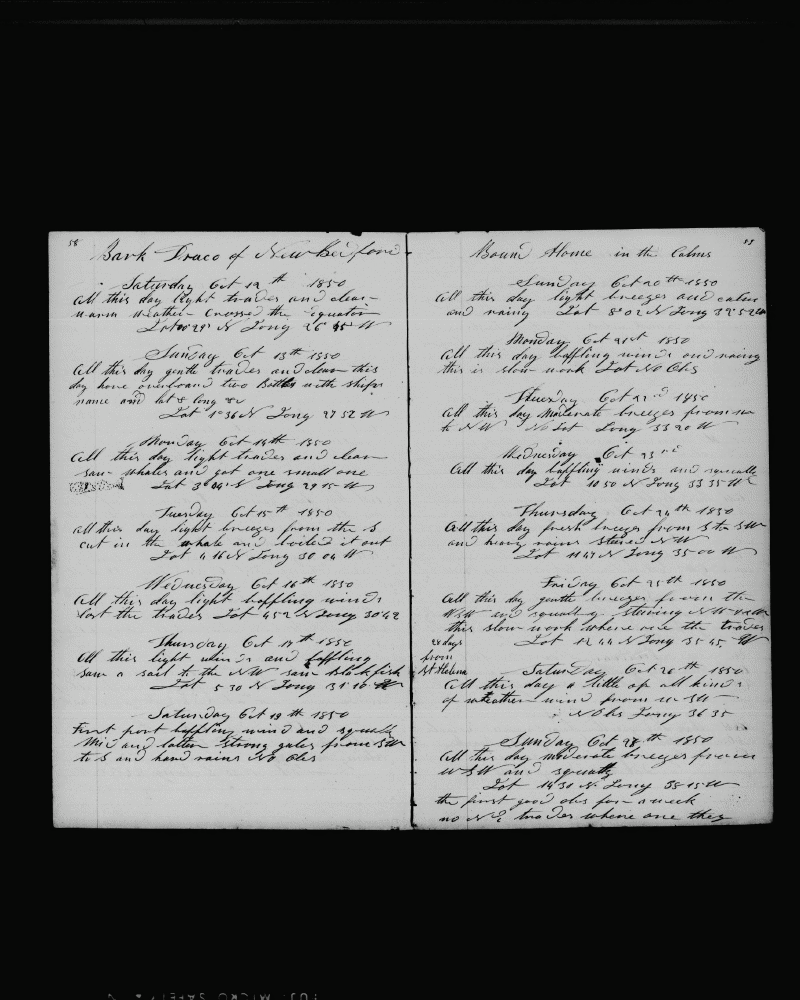 58
Bark Draco of New Bedford
Saturday Oct 12th 1850
All this day light trades and clear
warm weather Crossed the Equator
Lat 00 29 N Long 26 45 W
Sunday Oct 13th 1850
All this day gentle trades and clear this
day hove overboard two Bottles with ships
name and lat & long &c
Lat 1°36 N Long 27 52 W
Monday Oct 14th 1850
All this day light trades and clear
saw whales and got one small one
Lat 3°04' N Long 29 15 W
Tuesday Oct 15th 1850
all this day light breezes from the S
cut in the whale and boiled it out
Lat 4 16 N Long 30 04 W
Wednesday Oct 16th 1850
All this day light baffling winds
lost the trades Lat 4 52 N Long 30 42
Thursday Oct 17th 1850
All this light winds and baffling
saw a sail to the NW saw Blackfish
Lat 5 30 N Long 31 10 W
Saturday Oct 19th 1850
First part baffling wind and squalls
Mid and latter strong gales from SW
to S and hard rains No Obs
Bound Home in the Calms
Sunday Oct 20th 1850
All this day light breezes and calm
and rainy Lat 8°02 N Long 32°52 W
Monday Oct 21st 1850
All this day baffling winds and rainy
this is slow work Lat No Obs
Tuesday Oct 22nd 1850
All this day Moderate breezes from
to NW No Lat Long 33 20 W
Wednesday Oct 23rd
All this day baffling winds and squalls
Lat 10 50 N Long 33 35 W
Thursday Oct 24th 1850
All this day fresh breezes from S to SW
and heavy rains Steered NW
Lat 11 47 N Long 35 00 W
Friday Oct 25th 1850
All this day gentle breezes from the
WSW and squally steering NW
this slow work where are the trades
Lat 12 44 N Long 35 45 W
28 days
from
St Helena
Saturday Oct 26th 1850
All this day a little of all kinds
of weather wind from W SW
No Obs Long 36 35
Sunday Oct 27th 1850
All this day moderate breezes from
W SW and squally
Lat 14 30 N Long 38 15 W
the first good obs for a week
no NE trades where are they